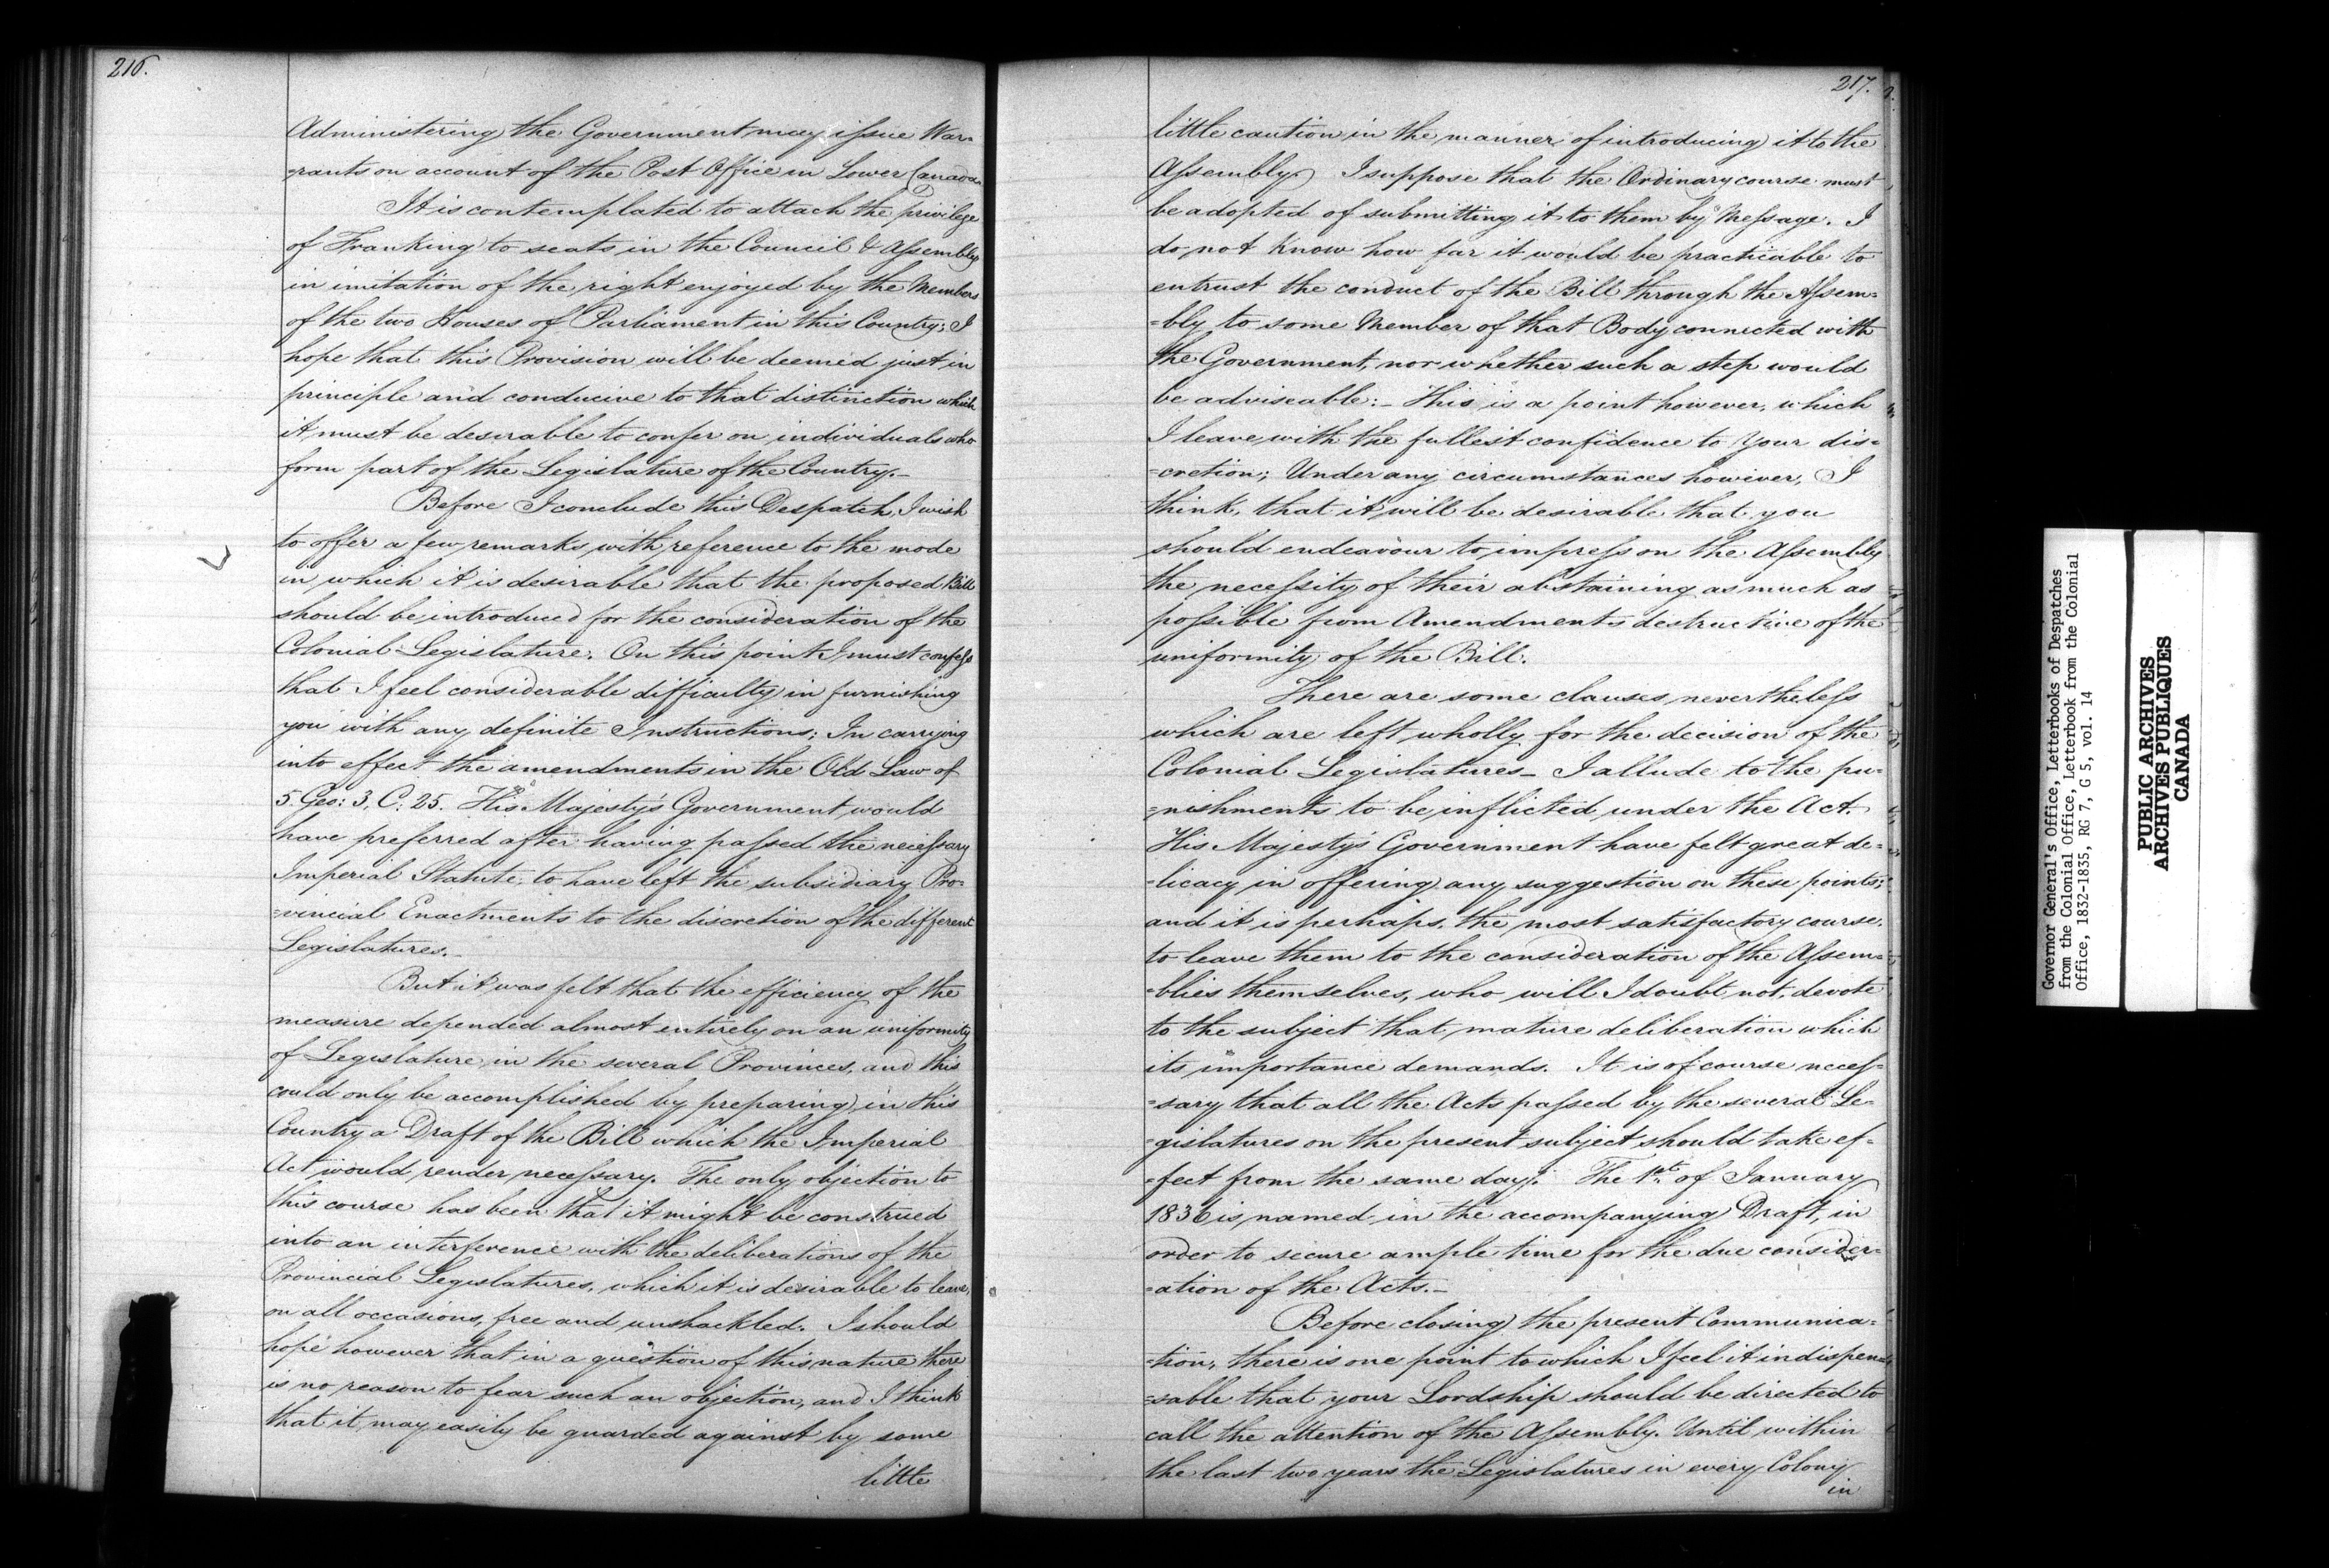 216.
Administering the Government may issue War=
=rants on account of the Post Office in Lower Canada.
It is contemplated to attach the privilege
of Franking to seats in the Council & Assembly
in imitation of the right enjoyed by the Members
of the two Houses of Parliament in this Country; I
hope that this Provision will be deemed just in
principle and conducive to that distinction which
it must be desirable to confer on individuals who
form part of the Legislature of the Country._
Before I conclude this Despatch, I wish
to offer a few remarks with reference to the mode
in which it is desirable that the proposed Bill
should be introduced for the consideration of the
Colonial Legislature. On this point I must confess
that I feel considerable difficulty in furnishing
you with any definite Instructions; In carrying
into effect the amendments in the Old Law of
5. Geo: 3. C: 25. His Majesty's Government would
have preferred after having passed the necessary
Imperial Statute, to have left the subsidiary Pro=
=vincial Enactments to the discretion of the different
Legislatures._
But it was felt that the efficiency of the
measure depended almost entirely on an uniformity
of Legislature in the several Provinces, and this
could only be accomplished by preparing in this
Country a Draft of the Bill which the Imperial
Act would render necessary. The only objection to
this course has been that it might be construed
into an interference with the deliberations of the
Provincial Legislatures, which it is desirable to leave,
on all occasions, free and unshackled. I should
hope however that in a question of this nature there
is no reason to fear such an objection, and I think
that it may easily be guarded against by some
little
217.
little caution in the manner of introducing it to the
Assembly. I suppose that the Ordinary course must
be adopted of submitting it to them by Message. I
do not know how far it would be practicable to
entrust the conduct of the Bill through the Assem=
=bly to some Member of that Body connected with
the Government, nor whether such a step would
be adviseable:_ This is a point however, which
I leave with the fullest confidence to Your dis=
=cretion; Under any circumstances however, I
think, that it will be desirable that you
should endeavour to impress on the Assembly
the necessity of their abstaining as much as
possible from Amendments destructive of the
uniformity of the Bill.
There are some clauses nevertheless
which are left wholly for the decision of the
Colonial Legislatures_ I allude to the pu=
=nishments to be inflicted under the Act.
His Majesty's Government have felt great de=
=licacy in offering any suggestion on these points;
and it is perhaps, the most satisfactory course,
to leave them to the consideration of the Assem=
=blies themselves, who will I doubt not, devote
to the subject that mature deliberation which
its importance demands. It is of course neces=
=sary that all the Acts passed by the several Le=
=gislatures on the present subject should take ef=
=fect from the same day. The 1st of January
1836 is named in the accompanying Draft, in
order to secure ample time for the due consider=
=ation of the Acts._
Before closing the present Communica=
=tion, there is one point to which I feel it indispen=
=sable that your Lordship should be directed to
call the attention of the Assembly. Until within
the last two years the Legislatures in every Colony
in
Governor General's Office, Letterbooks of Despatches
from the Colonial Office, Letterbook from the Colonial
Office, 1832-1835, RG 7, G 5, vol. 14
PUBLIC ARCHIVES
ARCHIVES PUBLIQUES
CANADA